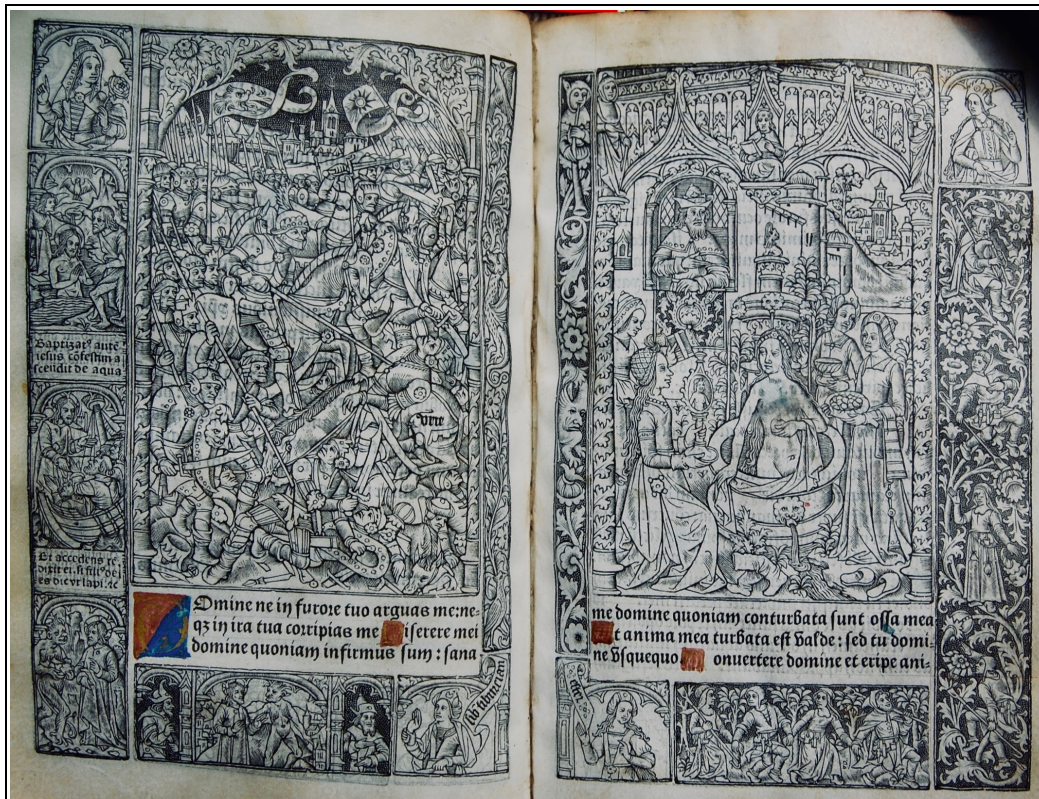 Baptizarꝰ autē
iesus cōfestim a
scendit de aqua
Et accedens
dixit ei. si filiꝰ dei
es dic vt lapi. ⁊c
Vrie
Omine ne in furore tuo arguas me: ne-
qꝫ in ira tua corripias me iserere mei
domine quoniam infirmus sum: sana
me domine quoniam conturbata sunt ossa mea
t anima mea turbata est valde: sed tu domi-
ne vsquequo onuertere domine et eripe ani-